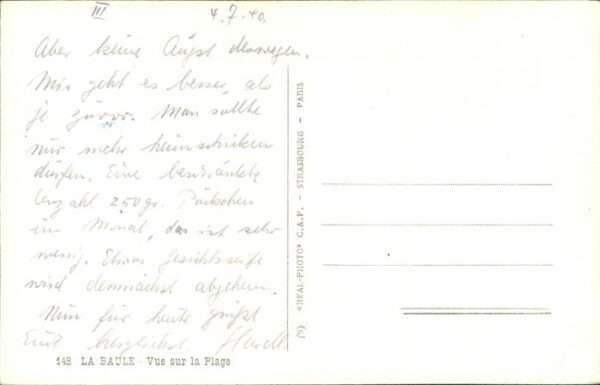 III
4.7.40.
Aber keine Angst deswegen.
Mir geht es besser, als
je zuvor. Man sollte
nur mehr heimschicken
dürfen. Eine beschränkte
Anzahl 250gr. Päckchen
im Monat, das ist sehr
wenig. Etwas Gesichtsseife
wird demnächst abgehen.
Nun für heute grüßt
Euch herzlichst
148 LA BAULE - Vue sur la Plage
"REAL-PHOTO" C.A.P. - STRASBOURG - PARIS